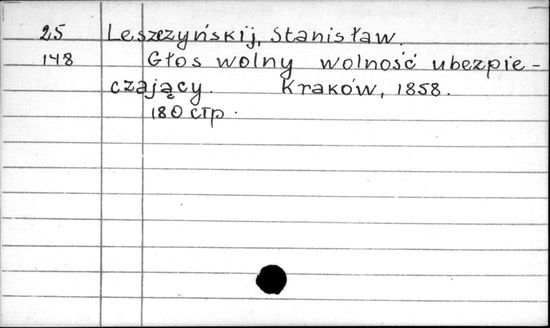 25 Leszczyńskij, Stanisław.
148 Głos wolny wolność ubezpie-
czający. Kraków, 1858.
180 стр.